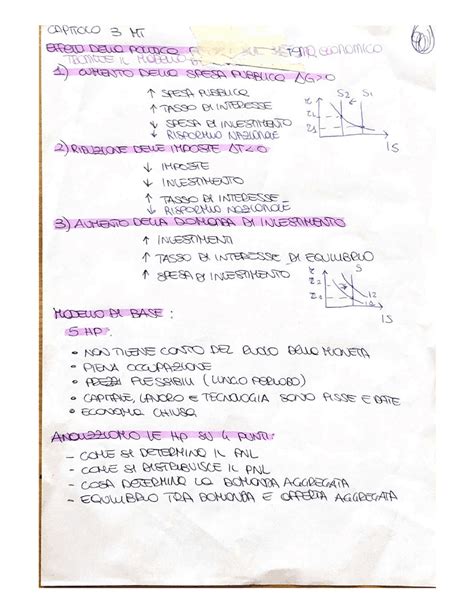 CAPITOLO 3 MT
EFFETTI DELLA POLITICA SISTEMA ECONOMICO
TRAMITE IL MODELLO DI
1) AUMENTO DELLA SPESA PUBBLICA ΔG>0
↑ SPESA PUBBLICA
↑ TASSO DI INTERESSE
↓ SPESA DI INVESTIMENTO
↓ RISPARMIO NAZIONALE
S2 S1
IS
2) RIDUZIONE DELLE IMPOSTE ΔT<0
↓ IMPOSTE
↓ INVESTIMENTO
↑ TASSO DI INTERESSE
↓ RISPARMIO NAZIONALE
3) AUMENTO DELLA DOMANDA DI INVESTIMENTO
↑ INVESTIMENTI
↑ TASSO DI INTERESSE DI EQUILIBRIO
↑ SPESA DI INVESTIMENTO
S
I2
I1
IS
MODELLO DI BASE :
5 HP :
• NON TIENE CONTO DEL RUOLO DELLA MONETA
• PIENA OCCUPAZIONE
• PREZZI FLESSIBILI (LUNGO PERIODO)
• CAPITALE, LAVORO E TECNOLOGIA SONO FISSE E DATE
• ECONOMIA CHIUSA
ANALIZZIAMO LE HP SU 4 PUNTI:
- COME SI DETERMINA IL PNL
- COME SI DISTRIBUISCE IL PNL
- COSA DETERMINA LA DOMANDA AGGREGATA
- EQUILIBRIO TRA DOMANDA E OFFERTA AGGREGATA